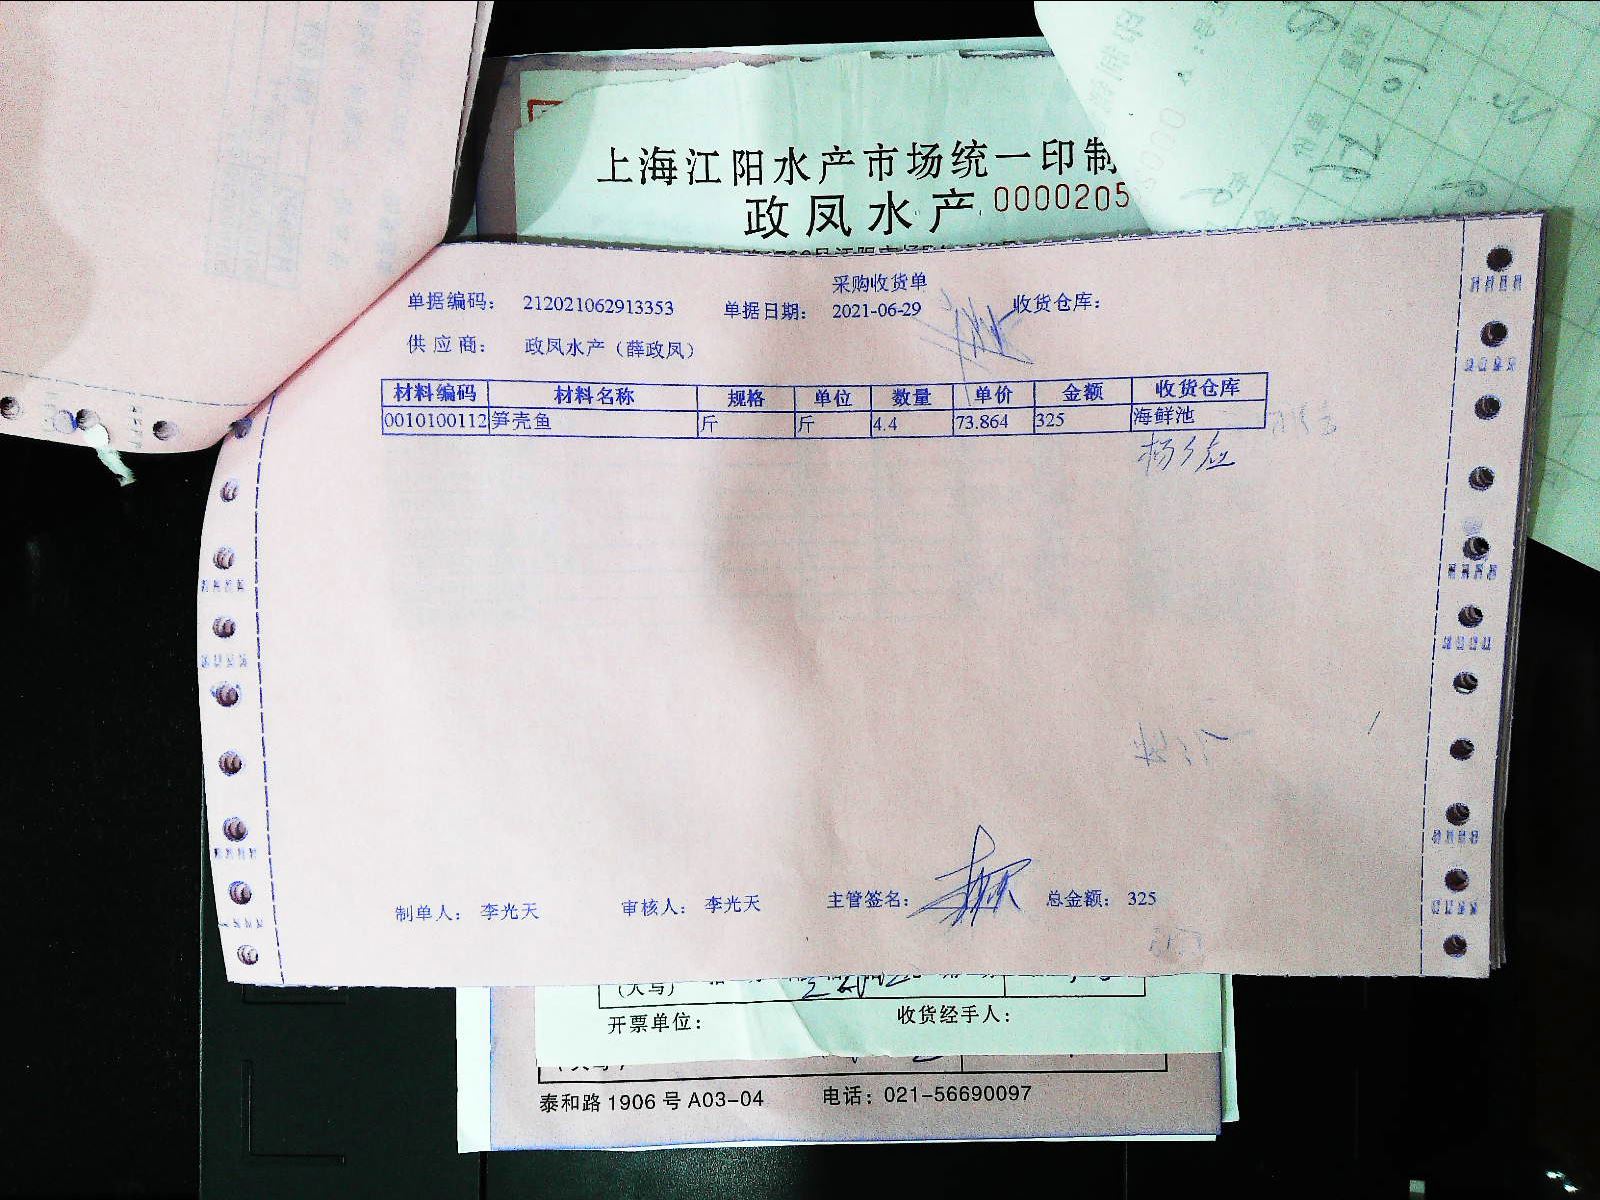 上海江阳水产市场统一印制
政凤水产 0000205
采购收货单
单据编码： 212021062913353 单据日期： 2021-06-29 收货仓库：
供应商： 政凤水产（薛政凤）
材料编码 材料名称 规格 单位 数量 单价 金额 收货仓库
0010100112 笋壳鱼 斤 斤 4.4 73.864 325 海鲜池
制单人： 李光天 审核人： 李光天 主管签名： 总金额： 325
(大写)
开票单位： 收货经手人：
泰和路1906号A03-04 电话：021-56690097